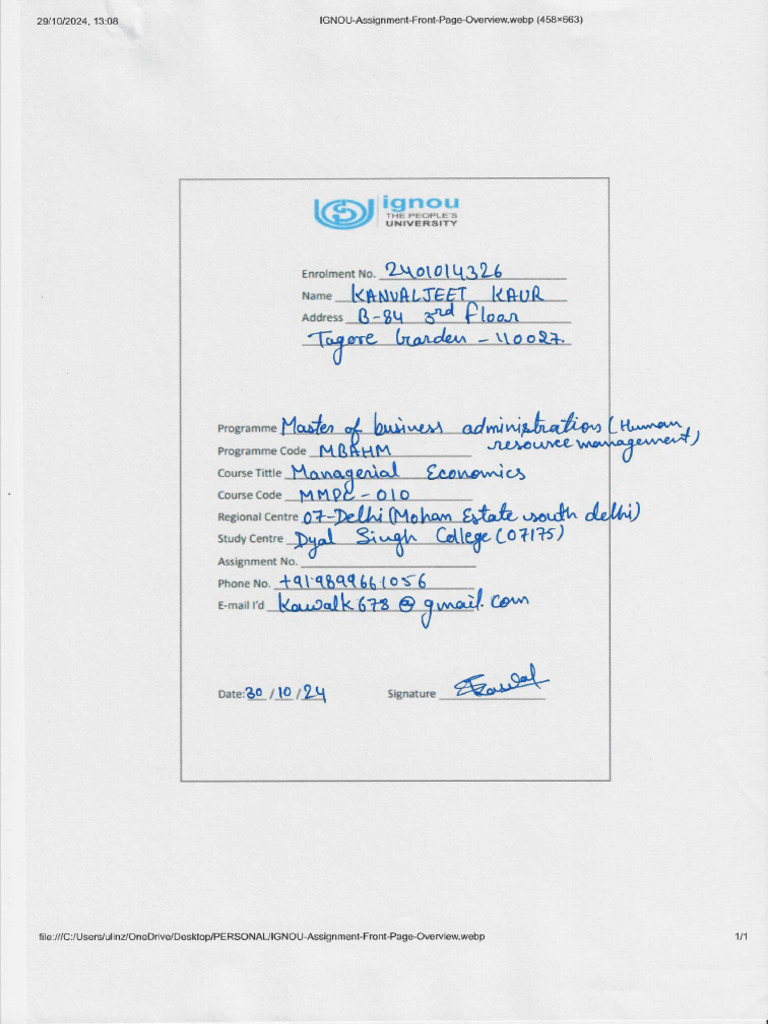 29/10/2024, 13:08 IGNOU-Assignment-Front-Page-Overview.webp (458×663)
ignou
THE PEOPLE'S
UNIVERSITY
Enrolment No. 2401014326
Name KANVALJEET KAUR
Address B-84 3rd Floor
Tagore Garden - 110027.
Programme Master of business administration (Human
resource management)
Programme Code MBAHM
Course Tittle Managerial Economics
Course Code MMPC-010
Regional Centre 07-Delhi (Mohan Estate south delhi)
Study Centre Dyal Singh College (07175)
Assignment No.
Phone No. +91-9899661056
E-mail I'd Kawalk678@gmail.com
Date: 30 / 10 / 24 Signature
file:///C:/Users/ulinz/OneDrive/Desktop/PERSONAL/IGNOU-Assignment-Front-Page-Overview.webp 1/1